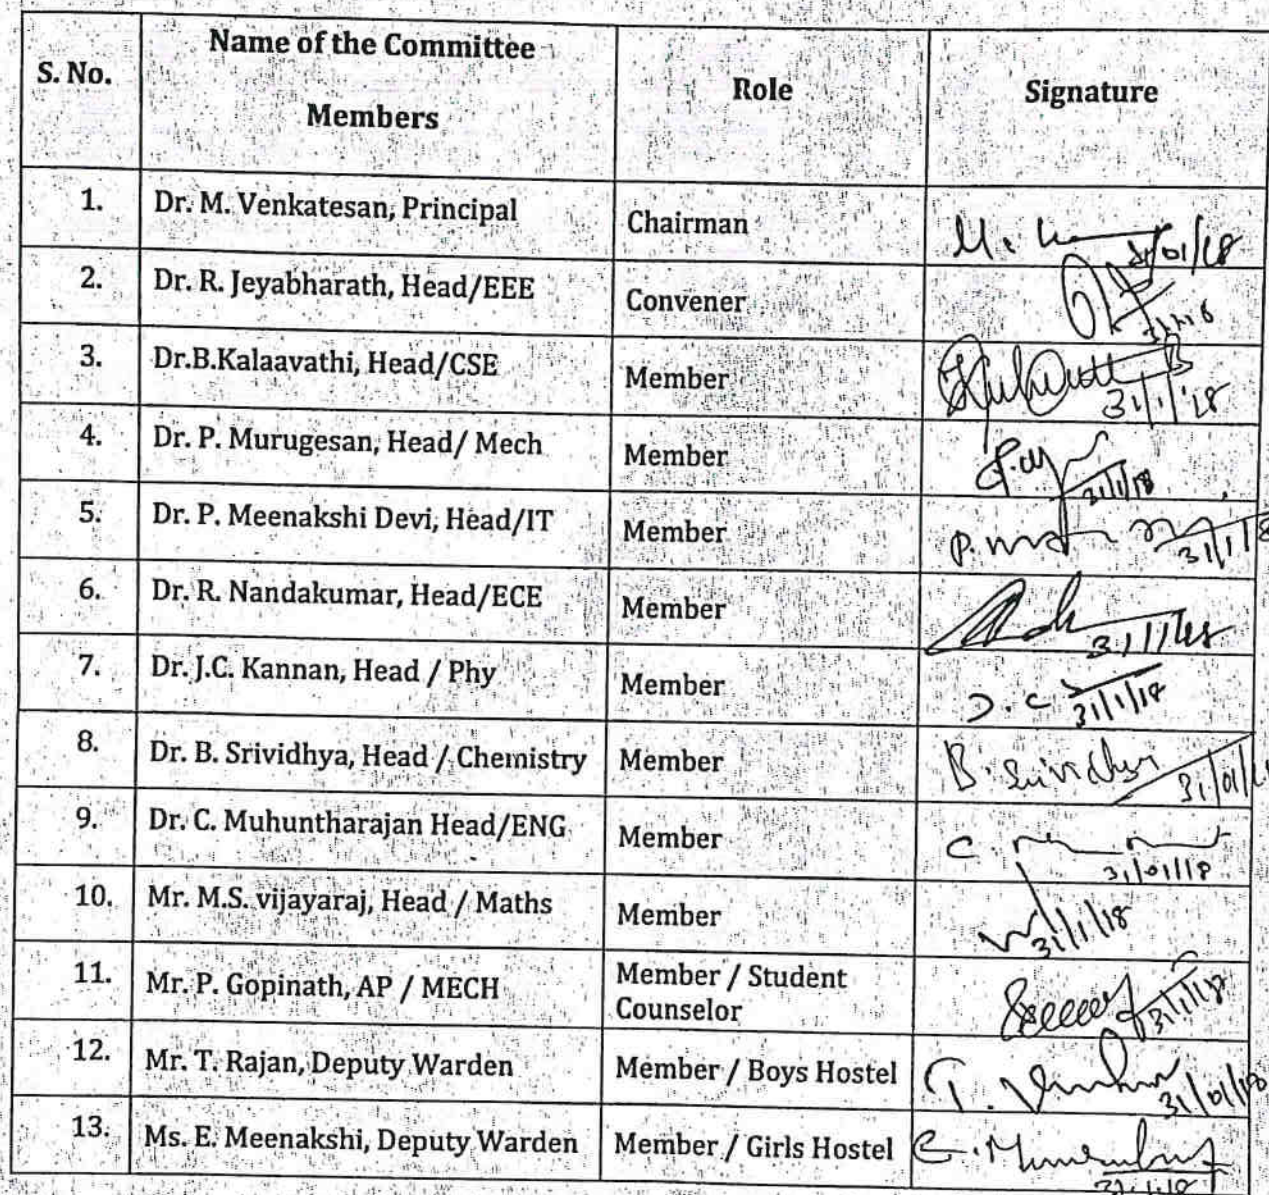 S. No.
Name of the Committee
Members
Role
Signature
1. Dr. M. Venkatesan, Principal Chairman 31/01/18
2. Dr. R. Jeyabharath, Head/EEE Convener
3. Dr.B.Kalaavathi, Head/CSE Member 31/1/'18
4. Dr. P. Murugesan, Head/ Mech Member 31/1/18
5. Dr. P. Meenakshi Devi, Head/IT Member P. 31/1/18
6. Dr. R. Nandakumar, Head/ECE Member 31/1/18
7. Dr. J.C. Kannan, Head / Phy Member J.C 31/1/18
8. Dr. B. Srividhya, Head / Chemistry Member B. Srividhya 31/01/18
9. Dr. C. Muhuntharajan Head/ENG Member C. 31/01/18
10. Mr. M.S. vijayaraj, Head / Maths Member 31/1/18
11. Mr. P. Gopinath, AP / MECH Member / Student
Counselor 31/1/18
12. Mr. T. Rajan, Deputy Warden Member / Boys Hostel T. 31/01/18
13. Ms. E. Meenakshi, Deputy Warden Member / Girls Hostel E. Meenakshi
31/1/18